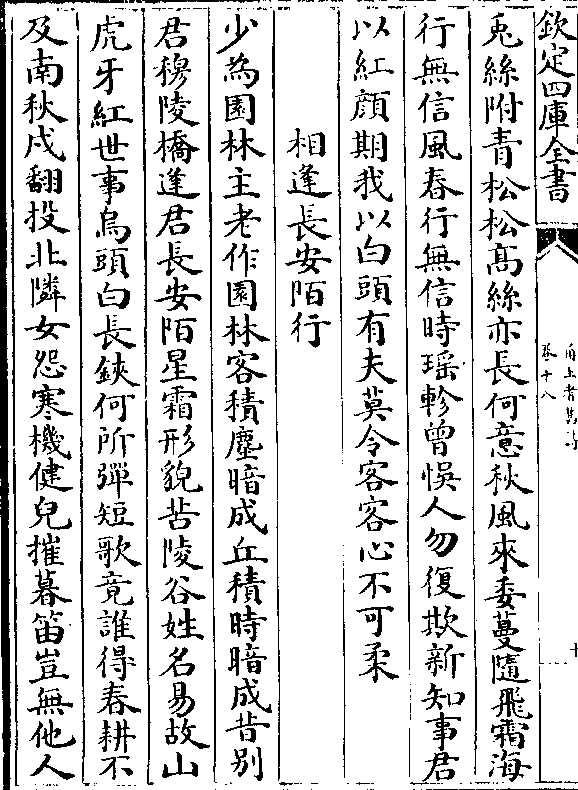 欽定四庫全書
甬上耆舊詩
卷十八
兎絲附青松松髙絲亦長何意秋風來委蔓隨飛霜海
行無信風春行無信時瑶軫曾悞人勿復欺新知事君
以紅顔期我以白頭有夫莫令客客心不可柔
相逢長安陌行
少為園林主老作園林客積塵暗成丘積時暗成昔别
君穆陵橋逢君長安陌星霜形貌苦陵谷姓名易故山
虎牙紅世事烏頭白長鋏何所彈短歌竟誰得春耕不
及南秋戍翻投北隣女怨寒機健兒摧暮笛豈無他人